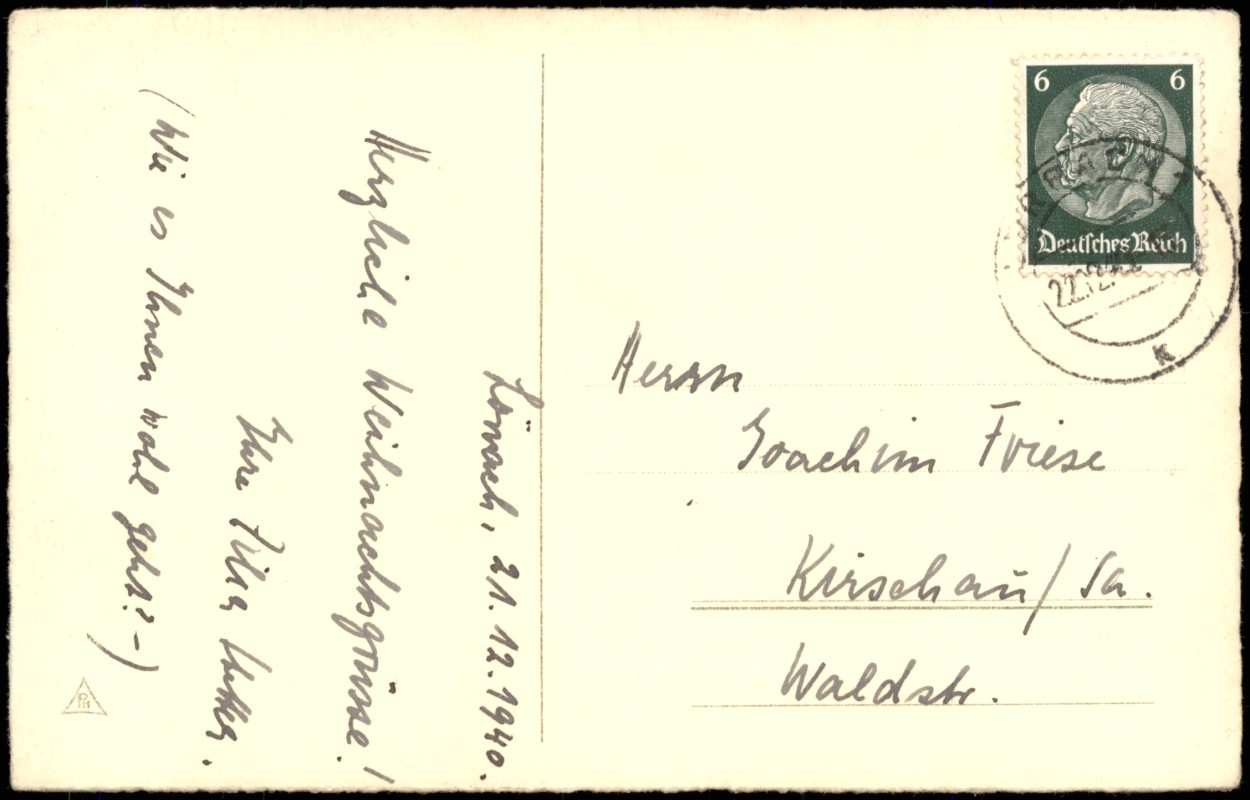 Lörrach, 21.12.1940.
Herzliche Weihnachtsgrüsse!
Ihre
(Wie es Ihnen wohl geht?-)
6 6
Deutsches Reich
22.12.
K
Herrn
Joachim Friese
Kirschau/Sa.
Waldstr.